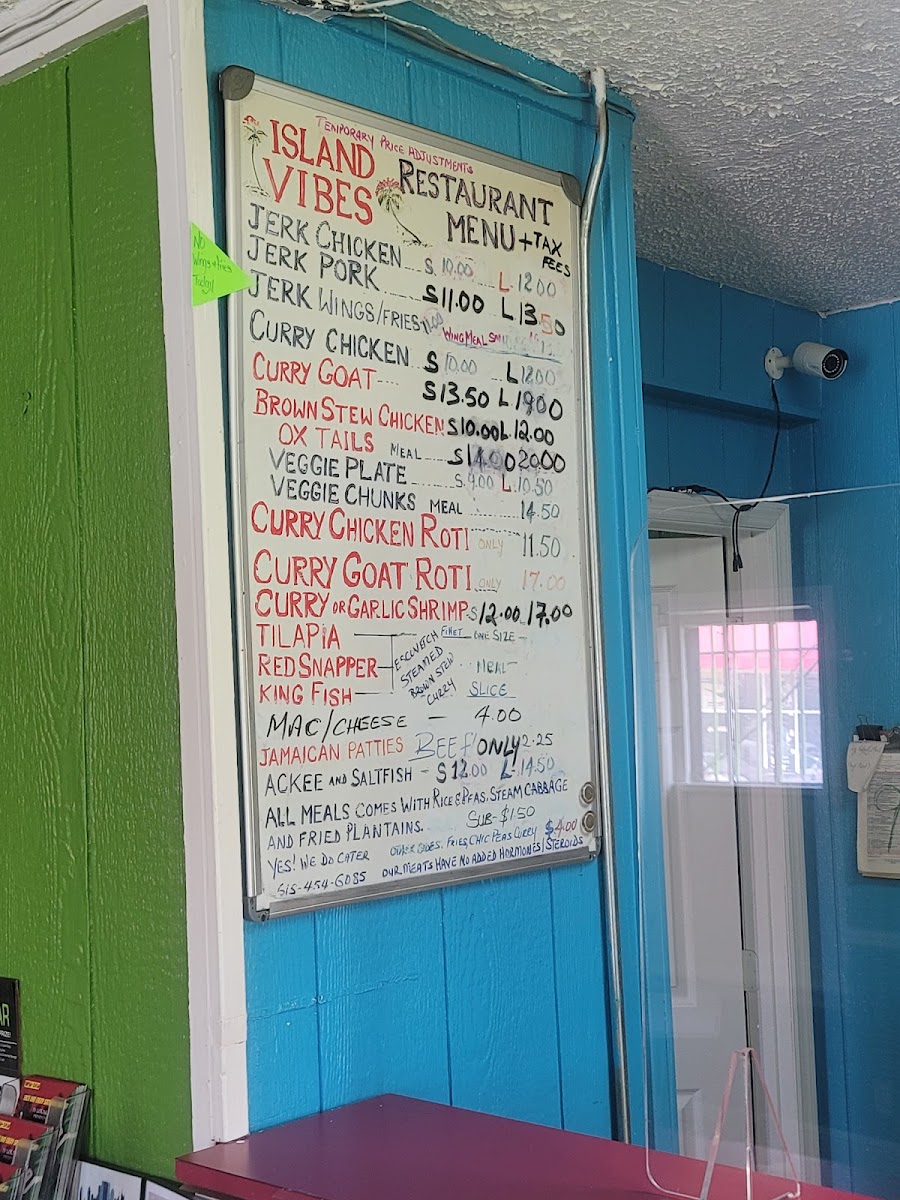 TEMPORARY PRICE ADJUSTMENTS
ISLAND VIBES
RESTAURANT MENU + TAX FEES
JERK CHICKEN S. 10.00 L. 12.00
JERK PORK S 11.00 L 13.50
No Wings & fries Today!
JERK WINGS/FRIES WING MEAL
CURRY CHICKEN S 10.00 L 12.00
CURRY GOAT S 13.50 L 19.00
BROWN STEW CHICKEN S 10.00 L 12.00
OX TAILS MEAL S 20.00
VEGGIE PLATE S. 9.00 L. 10.50
VEGGIE CHUNKS MEAL 14.50
CURRY CHICKEN ROTI ONLY 11.50
CURRY GOAT ROTI ONLY 17.00
CURRY OR GARLIC SHRIMP S 12.00 L 17.00
TILAPIA FILLET ONE SIZE
RED SNAPPER MEAL
KING FISH SLICE
STEAMED
BROWN STEW
CURRY
MAC/CHEESE - 4.00
JAMAICAN PATTIES BEEF ONLY 2.25
ACKEE AND SALTFISH - S 12.00 L. 14.50
ALL MEALS COMES WITH RICE & PEAS. STEAM CABBAGE
AND FRIED PLANTAINS. SUB- $1.50
YES! WE DO CATER OTHER SIDES. FRIES, CHIC PEAS CURRY $4.00
615-454-6085 OUR MEATS HAVE NO ADDED HORMONES/STEROIDS